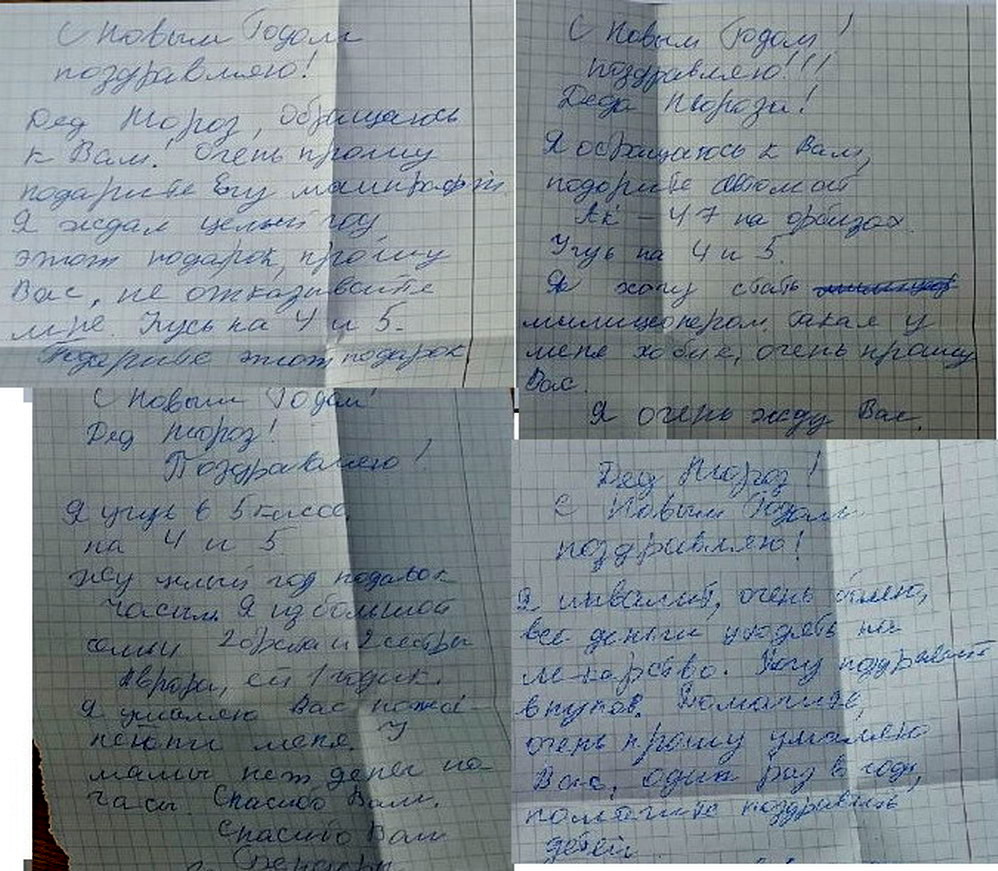 С Новым Годом
поздравляю!
Дед Мороз, Обращаюсь
к Вам! Очень прошу
подарите Егу
Я ждал целый год
этот подарок, прошу
Вас, не отказывайте
мне. Учусь на 4 и 5.
Подарите этот подарок
С Новым Годом!
поздравляю!!!
Деда Мороза!
Я обращаюсь к Вам,
подорите автомат
Ак - 47 на орбизах.
Учусь на 4 и 5.
Я хочу стать
милиционером. такая у
меня хобие, очень прошу
Вас.
Я очень жду Вас.
С Новым Годом!
Дед Мороз!
Поздравляю!
Я учусь в 5 классе
на 4 и 5
жду целый год подарок
часы. Я из большой
семьи 2 брата и 2 сестры
Аврора, ей 1 годик.
Я умаляю Вас пожа-
меня. У
мамы нет денег на
часы. Спасибо Вам.
Спасибо Вам
Дед Мороз!
С Новым Годом
поздравляю!
Я инвалит, очень болею,
все деньги уходять на
лекарство. Хочу поздравить
внуков.
очень прошу умаляю
Вас, один раз в году,
помогите поздравить
детей